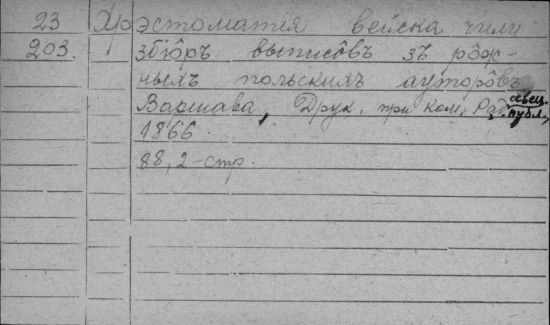 23 Хрэстоматия вейска чили
203. збіôръ выписôвъ зъ рôж-
ныхъ польскихъ ауторôвъ
Варшава, Друк. при Ком. Ржд. освец.
публ,
1866.
88, 2-стр.